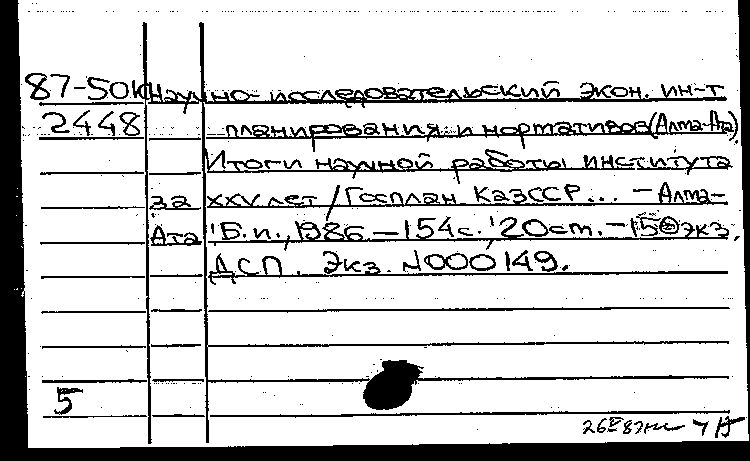 87-50К Научно-исследовательский экон. ин-т
2448 планирования и нормативов (Алма-Ата).
Итоги научной работы института
за XXV лет / Госплан КазССР... – Алма-
Ата : Б.и., 1986. – 154с.; 20см. – 150 экз.
ДСП. Экз. N000149.
5